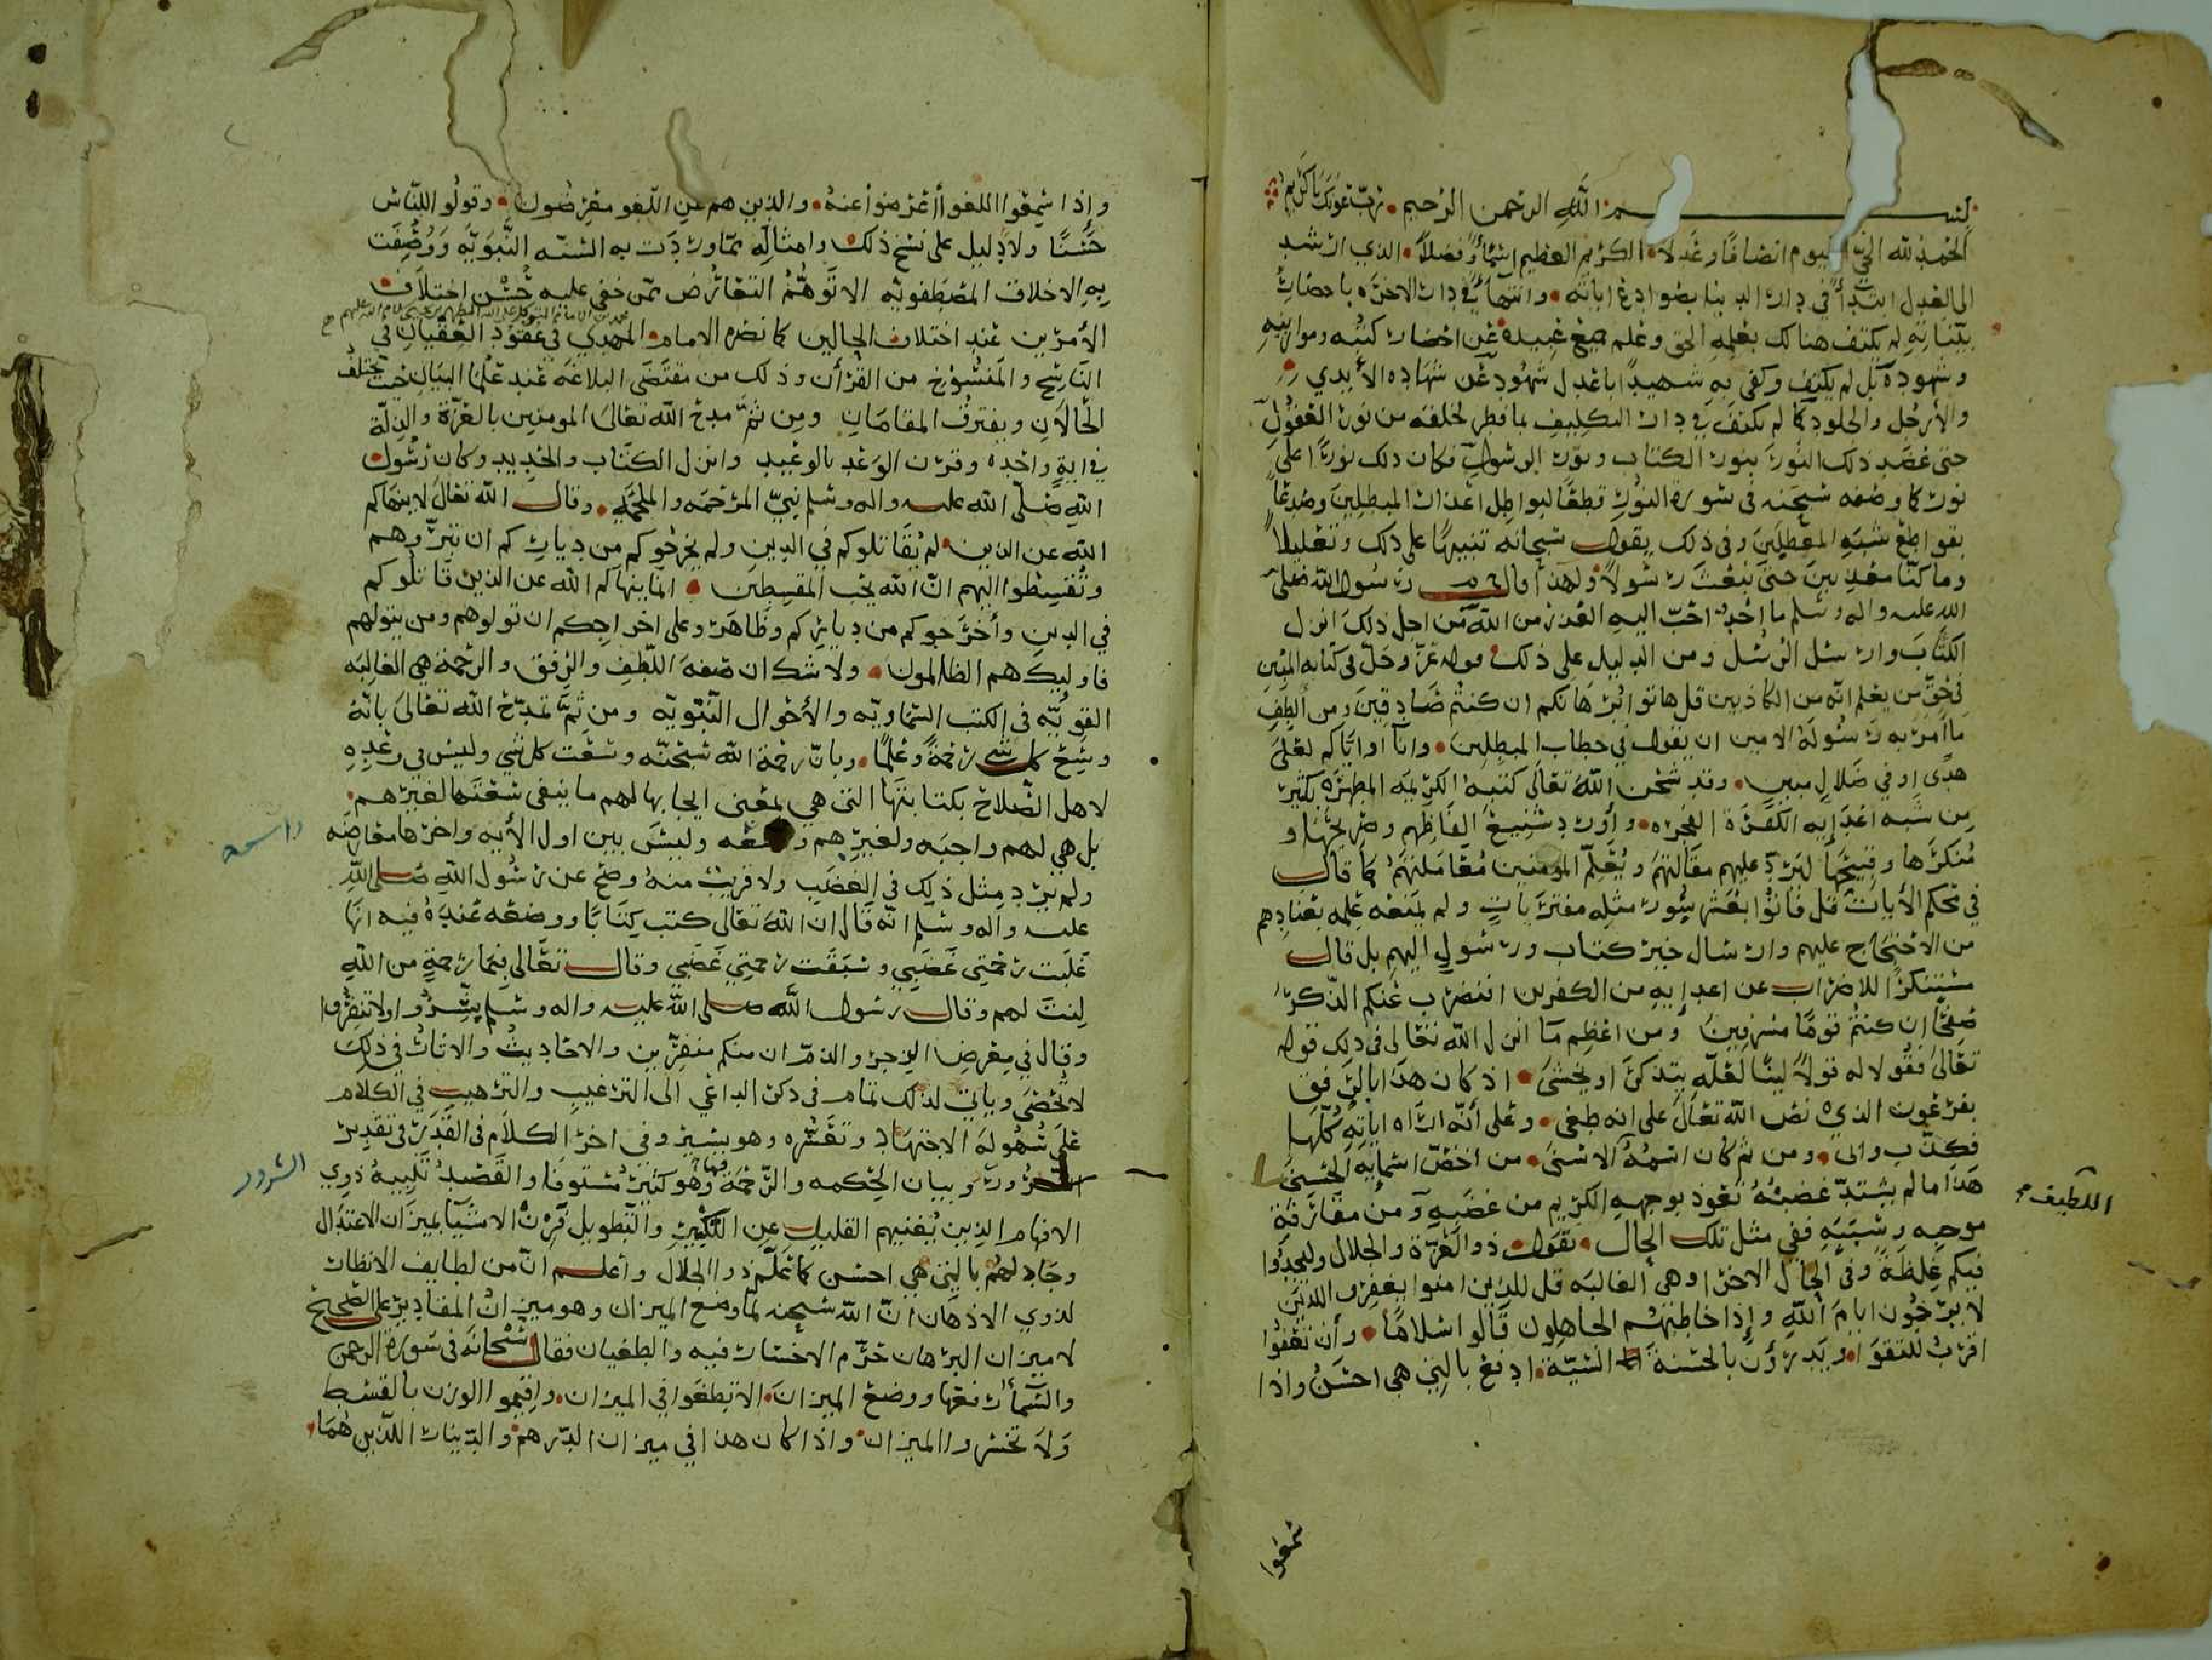 بسم الله الرحمن الرحيم رب عونك يا كريم
الحمد لله الحي القيوم انصافا وعدلا الكريم العظيم اسما وفضلا الذي ارشد
الى العدل ابتدأ في دار الدنيا بصوادع اياته وانتهاً في دار الاخره باحضار
بيناته لم يكتف هنالك بعلمه الحق وعلم جميع عبيده عن احضار كتبه وموازينه
وشهوده بل لم يكتف وكفى به شهيدا باعدل شهود عن شهاده الأيدي
والأرجل والجلود كما لم يكتف في دار التكليف بما فطر لخلقه من نور العقول
حتى عضد ذلك النور بنور الكتاب ونور الرسول فكان ذلك نورا على
نور كما وصفه سبحنه في سورة النور قطعا لبواطل اعذار المبطلين وصدعا
بقواطع شبه المعطلين وفي ذلك يقول سبحانه تنبيها على ذلك وتعليلا
وما كنا معذبين حتى نبعث رسولا ولهذا قال رسول الله صلى
الله عليه واله وسلم ما احد احب اليه العذر من الله من اجل ذلك انزل
الكتاب وارسل الرسل ومن الدليل على ذلك قوله عز وجل في كتابه المبين
في حق من يعلم انه من الكاذبين قل هاتوا برهانكم ان كنتم صادقين ومن الطف
ما امر به رسوله الامين ان يقول في خطاب المبطلين وانا او اياكم لعلى
هدى او في ضلال مبين وقد شحن الله تعالى كتبه الكريمه المطهره بكثير
من شبه اعدايه الكفرة الفجره واورد شنيع الفاظهم وصريحها و
منكرها وقبيحها ليرد عليهم مقالتهم ويعلم المومنين معاملتهم كما قال
في محكم الأيات قل فاتوا بعشر سور مثله مفتريات ولم يمنعه علمه بعنادهم
من الاحتجاج عليهم وارسال خير كتاب ورسول اليهم بل قال
مستنكرا للاضراب عن اعدايه من الكفرين افنضرب عنكم الذكر
صفحا ان كنتم قوما مسرفين ومن اعظم ما انزل الله تعالى في ذلك قوله
تعالى فقولا له قولا لينا لعله يتذكر او يخشى اذ كان هذا بالرفق
بفرعون الذي نص الله تعالى على انه طغى وعلى أنه اراه اياته كلها
فكذب وابى ومن ثم كان اسمه الاسنى من اخص اسمايه الحسنى
اللطيف
هذا ما لم يشتد غضبه نعوذ بوجهه الكريم من غضبه ومن مقارفة
موجبه وسببه ففي مثل تلك الحال نقول ذو العزة والجلال وليجدوا
فيكم غلظة وفي الحال الاخرا وهي الغالبه قل للذين امنوا يغفروا للذين
لا يرجون ايام الله وإذا خاطبهم الجاهلون قالوا سلاما وأن تعفوا
اقرب للتقوا ويدرؤن بالحسنة السيئة ادفع بالتي هي احسن واذا
سمعوا
وإذا سمعوا اللغو أعرضوا عنه والذين هم عن اللغو معرضون وقولوا للناس
حسنا ولا دليل على نسخ ذلك وامثاله مما وردت به السنه النبويه ووصفت
به الاخلاق المصطفويه الا توهم التعارض ممن خفي عليه حسن اختلاف
الأمرين عند اختلاف الحالين كما نصره الامام المهدي في عقود العقيان في
الناسخ والمنسوخ من القرأن وذلك من مقتضى البلاغه عند علما البيان حيث يختلف
الحالان ويفترق المقامان ومن ثم مدح الله تعالى المومنين بالعزة والذلة
في اية واحده وقرن الوعد بالوعيد وانزل الكتاب والحديد وكان رسول
الله صلى الله عليه واله وسلم نبي المرحمه والملحمه وقال الله تعالى لا ينهاكم
الله عن الذين لم يقاتلوكم في الدين ولم يخرجوكم من دياركم ان تبروهم
وتقسطوا اليهم ان الله يحب المقسطين انما ينهاكم الله عن الذين قاتلوكم
في الدين وأخرجوكم من دياركم وظاهروا على اخراجكم ان تولوهم ومن يتولهم
فاوليك هم الظالمون ولا شك ان صفة اللطف والرفق والرحمة هي الغالبه
القويه في الكتب السماويه والأحوال النبويه ومن ثم تمدح الله تعالى بانه
وسع كل شي رحمة وعلما وبان رحمة الله سبحنه وسعت كل شي وليس في وعده
لاهل الصلاح بكتابتها التي هي بمعنى ايجابها لهم ما ينفي سعتها لغيرهم
بل هي لهم واجبه ولغيرهم واسعه وليس بين اول الأيه واخرها معارضه
واسعه
ولم يرد مثل ذلك في الغضب ولا قريب منه وصح عن رسول الله صلى الله
عليه واله وسلم انه قال ان الله تعالى كتب كتابا ووضعه عنده فيه انها
غلبت رحمتي غضبي وسبقت رحمتي غضبي وقال تعالى فبما رحمة من الله
لنت لهم وقال رسول الله صلى الله عليه واله وسلم يسروا ولا تنفروا
وقال في معرض الزجر والذم ان منكم منفرين والاحاديث والاثار في ذلك
لا تحصى وياتي لذلك تمام في ذكر الداعي الى الترغيب والترهيب في الكلام
على سهولة الاجتهاد وتعسره وهو يسير وفي اخر الكلام في القدر في تقدير
الشرور وبيان الحكمه والرحمة فيها وهو كثير مستوفا والقصد تنبيه ذوي
الشرور
الافهام الذين يغنيهم القليل عن التكثير والتطويل قرن الاشيا بميزان الاعتدال
وجادلهم بالتي هي احسن كما علم ذوا الجلال وأعلم ان من لطايف الانظار
لذوي الاذهان ان الله سبحنه لما وضع الميزان وهو ميزان المقادير على الصحيح
لا ميزان البرهان حرم الاخسار فيه والطغيان فقال سبحانه في سورة الرحمن
والسمأ رفعها ووضع الميزان الا تطغوا في الميزان واقيموا الوزن بالقسط
ولا تخسروا الميزان واذا كان هذا في ميزان الدرهم والدينار اللذين هما